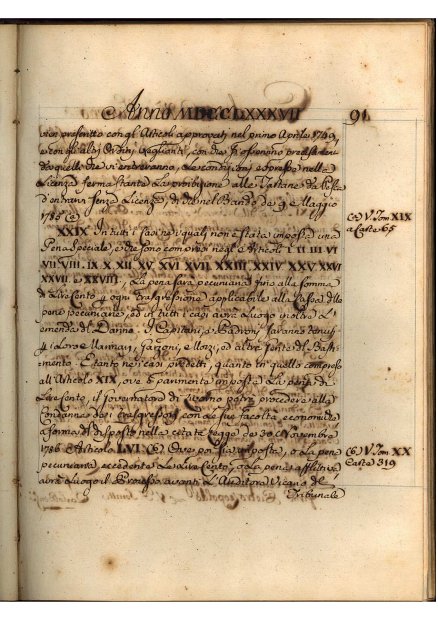 Anno MDCCLXXXVII 91
vien prescritto con gl'Articoli approvati nel primo Aprile 1749
e con gli altri Ordini veglianti, con che s'osservino precisamente
da quelli che v'entreranno, Le condizioni espresse nella
Licenza ferma stante La proibizione alle Tartane da Pesca
d'entrare senza Licenza, di che nel Bando de 9 Maggio
1785 (a)
(a) V. Tom XIX
a Carte 65
XXIX. In tutti i casi ne' quali non è stata imposta una
Pena Speciale, e che sono compresi negl'Articoli I. II. III. VI
VII. VIII. IX. X. XII. XV. XVI. XVII. XXIII. XXIV. XXV. XXVI
XXVII. e XXVIII. La pena sarà pecuniaria fino alla somma
di Lire Cento per ogni trasgressione applicabile alla Cassa delle
pene pecuniarie, ed in tutti i casi avrà Luogo inoltre L'
emenda del Danno. I Capitani, e Padroni saranno tenuti
per i Loro Marinari, Garzoni, e Mozzi, ed altre Genti del Basti-
mento. E tanto nei casi predetti, quanto in quello compreso
all'Articolo XIX, ove è parimente imposta La pena di
Lire Cento, il Governatore di Livorno potrà procedere alla
condanna dei Trasgressori con le sue facoltà economiche
a forma del disposto nella Legge de' 30 Novembre
1786 Articolo LVI (b) Ove poi sia imposta, o La pena
(b) V. Tom XX
Carte 319
pecuniaria eccedente Le Lire Cento, o La pena afflittiva
avrà Luogo il Processo avanti L'Auditore Vicario del
Tribunale